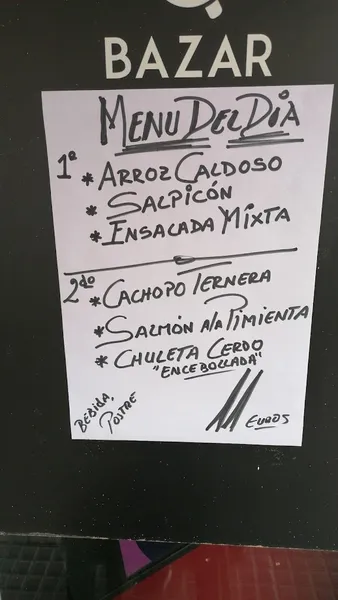 BAZAR
MENU DEL DIA
1º
* ARROZ CALDOSO
* SALPICÓN
* ENSALADA MIXTA
2do
* CACHOPO TERNERA
* SALMÓN A LA PIMIENTA
* CHULETA CERDO
"ENCEBOLLADA"
BEBIDA,
POSTRE
11 EUROS